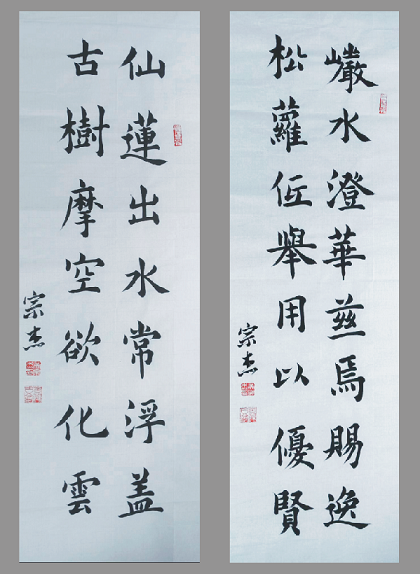 巖水澄華茲焉賜逸
松蘿仾舉用以優賢
宗杰
仙蓮出水常浮盖
古樹摩空欲化雲
宗杰